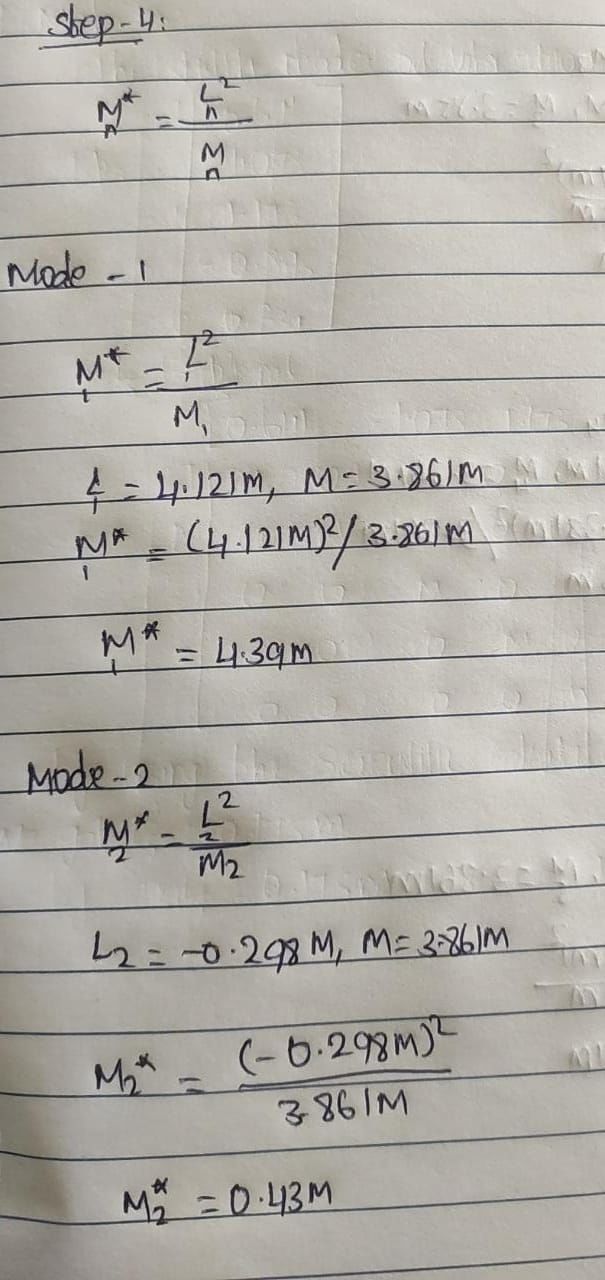 Step-4:
M*n = L²n / Mn
Mode - 1
M*1 = L²1 / M1
L1 = 4.121M, M = 3.861M
M*1 = (4.121M)²/3.861M
M*1 = 4.39M
Mode-2
M*2 = L²2 / M2
L2 = -0.298M, M = 3.861M
M2* = (-0.298M)² / 3.861M
M*2 = 0.43M